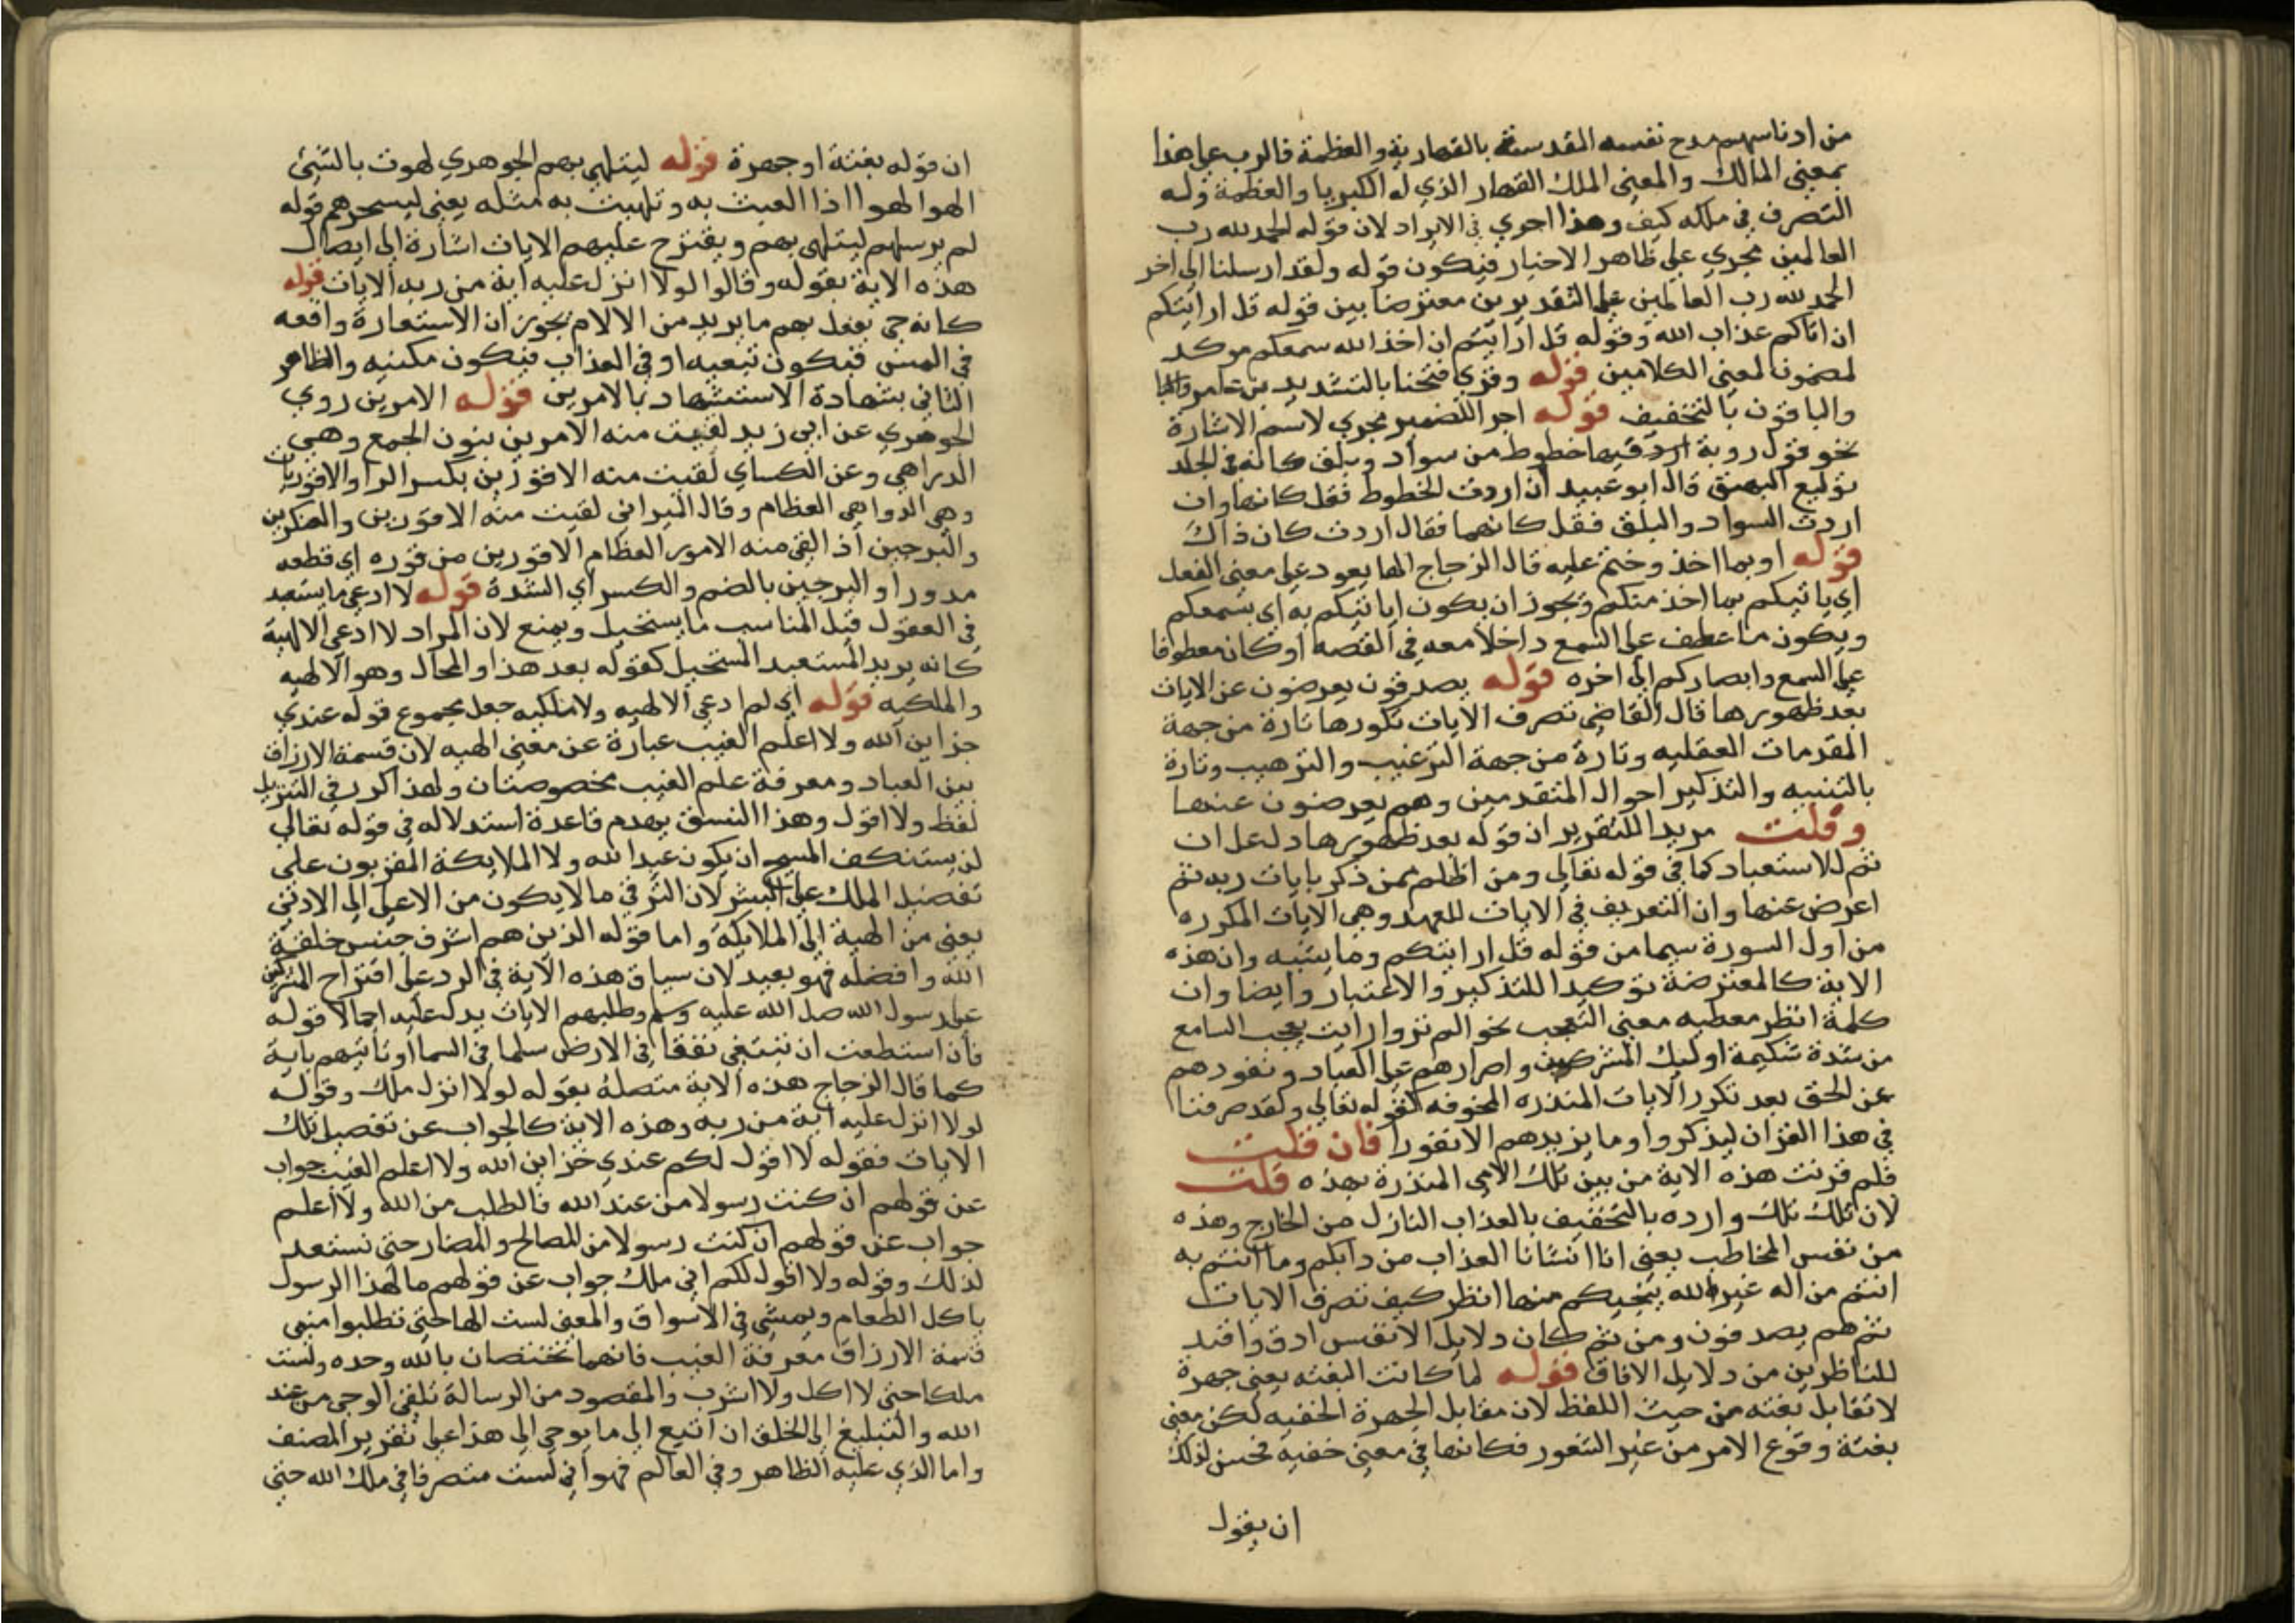 من ادناسهم مدح نفسه المقدسة بالقهارية والعظمة فالرب علي هذا
بمعني المالك والمعني الملك القهار الذي له الكبريا والعظمة وله
التصرف في ملكه كيف وهذا احري في الايراد لان قوله الحمد لله رب
العالمين يجري علي ظاهر الاخبار فيكون قوله ولقد ارسلنا الي اخر
الحمد لله رب العالمين علي التقديرين معترضا بين قوله قل ارايتكم
ان اتاكم عذاب الله وقوله قل ارايتم ان اخذ الله سمعكم موكد
لمضمونا لمعني الكلامين قوله وقري فتحنا بالتشديد بن عامر
والباقون بالتخفيف قوله اجرا للضمير مجري لاسم الاشارة
نحو قول روبة فيها خطوط من سواد وبلق كانه في الجلد
توليع البهق قال ابو عبيد ان اردت الخطوط فقل كانها وان
اردت السواد والبلق فقل كانهما فقال اردت كان ذاك
قوله او بما اخذ وختم عليه قال الزجاج الها يعود علي معني الفعل
اي ياتيكم بما اخذ منكم ويجوز ان يكون ياتيكم به اي بسمعكم
ويكون ما عطف علي السمع داخلا معه في القصه او كان معطوفا
علي السمع وابصاركم الي اخره قوله يصدفون يعرضون عن الايات
بعد ظهورها قال القاضي تصرف الايات نكورها تارة من جهة
المقدمات العقليه وتارة من جهة الترغيب والترهيب وتارة
بالتنبيه والتذكير احوال المتقدمين وهم يعرضون عنها
وقلت مريدا للتقرير ان قوله بعد ظهورها دل علي ان
ثم للاستعباد كما في قوله تعالي ومن اظلم ممن ذكر بايات ربه ثم
اعرض عنها وان التعريف في الايات للعهد وهي الايات المكرره
من اول السورة سيما من قوله قل ارايتكم وما يتنبه وان هذه
الاية كالمعترضة توكيدا للتذكير والاعتبار وايضا وان
كلمة انظر معطيه معني التعجب نحو الم تر وارايت يعجب السامع
من شدة شكيمة اوليك المشركين واصرارهم علي العباد ونفورهم
عن الحق بعد تكرر الايات المنذره المخوفه كقوله تعالي ولقد صرفنا
في هذا القران ليذكروا وما يزيدهم الا نفورا فان قلت
فلم قرنت هذه الاية من بين تلك الاي المنذرة بهذه قلت
لان تلك تلك وارده بالتخفيف بالعذاب النازل من الخارج وهذه
من نفس المخاطب يعني انا انشانا العذاب من دابكم وما انتم به
انتم من اله غير الله ينجيكم منها انظر كيف نصرف الايات
ثم هم يصدفون ومن ثم كان دلايل الانفس ادق وافيد
للناظرين من دلايل الافاق قوله لما كانت البغته يعني جهرة
لا تقابل بغته من حيث اللفظ لان مقابل الجهرة الخفيه لكن معني
بغتة وقوع الامر من غير الشعور فكانها في معني خفيه فحسن لذلك
ان يقول
ان قوله بغتة او جهرة قوله ليتلهي بهم الجوهري لهوت بالشي
الهوا لهوا اذا لعبت به وتلهيت به مثله يعني ليسخرهم قوله
لم يرسلهم ليتلهي بهم ويقترح عليهم الايات اشارة الي ايصال
هذه الاية بقوله وقالوا لولا انزل عليه اية من ربه الايات قوله
كانه حي يفعل بهم ما يريد من الالام يجوز ان الاستعارة واقعه
في المس فيكون تبعيه او في العذاب فيكون مكنيه والظاهر
الثاني بشهادة الاستشهاد بالامرين قوله الامرين روي
الجوهري عن ابي زيد لقيت منه الامرين بنون الجمع وهي
الدواهي وعن الكساي لقيت منه الاقورين بكسر الرا والاقوريات
وهي الدواهي العظام وقال لقيت منه الاقورين
والبرجين اذا لقي منه الامور العظام الاقورين من قوره اي قطعه
مدورا والبرجين بالضم والكسر اي الشدة قوله لا ادعي ما يستبعد
في العقول قيل المناسب ما يستحيل ويمنع لان المراد لا ادعي الالهية
كانه يريد المستبعد المستحيل كقوله بعد هذا والمحال وهو الالهيه
والملكيه قوله اي لم ادعي الالهيه ولا ملكيه جعل مجموع قوله عندي
خزاين الله ولا اعلم الغيب عبارة عن معني الهيه لان قسمة الارزاق
بين العباد ومعرفة علم الغيب مخصوصتان ولهذا كرر في التنزيل
لفظ ولا اقول وهذا النسق يهدم قاعدة استدلاله في قوله تعالي
لن يستنكف المسيح ان يكون عبدا لله ولا الملايكة المقربون علي
تفضيل الملك علي البشر لان الترقي ما لا يكون من الاعلي الي الادني
يعني من الهية الي الملايكة واما قوله الذين هم اشرف جنس خلقه
الله وافضله فهو بعيد لان سياق هذه الاية في الرد علي اقتراح المشركين
علي رسول الله صل الله عليه وسلم وطلبهم الايات يدل عليه اجمالا قوله
فان استطعت ان تبتغي نفقا في الارض سلما في السما او تاتيهم باية
كما قال الزجاج هذه الاية متصلة بقوله لولا انزل ملك وقوله
لولا انزل عليه اية من ربه وهذه الاية كالجواب عن تفصيل تلك
الايات فقوله لا اقول لكم عندي خزاين الله ولا اعلم الغيب جواب
عن قولهم ان كنت رسولا من عند الله فالطلب من الله ولا اعلم
جواب عن قولهم ان كنت رسولا من المصالح والمضار حتي نستعد
لذلك وقوله ولا اقول لكم اني ملك جواب عن قولهم ما لهذا الرسول
ياكل الطعام ويمشي في الاسواق والمعني لست الها حتي تطلبوا مني
قسمة الارزاق معرفة الغيب فانهما يختصان بالله وحده ولست
ملكا حتي لا اكل ولا اشرب والمقصود من الرسالة تلقي الوحي من عند
الله والتبليغ الي الخلق ان اتبع الي ما يوحي الي هذا علي تقرير المصنف
واما الذي عليه الظاهر وفي العالم فهو اني لست متصرفا في ملك الله حتي